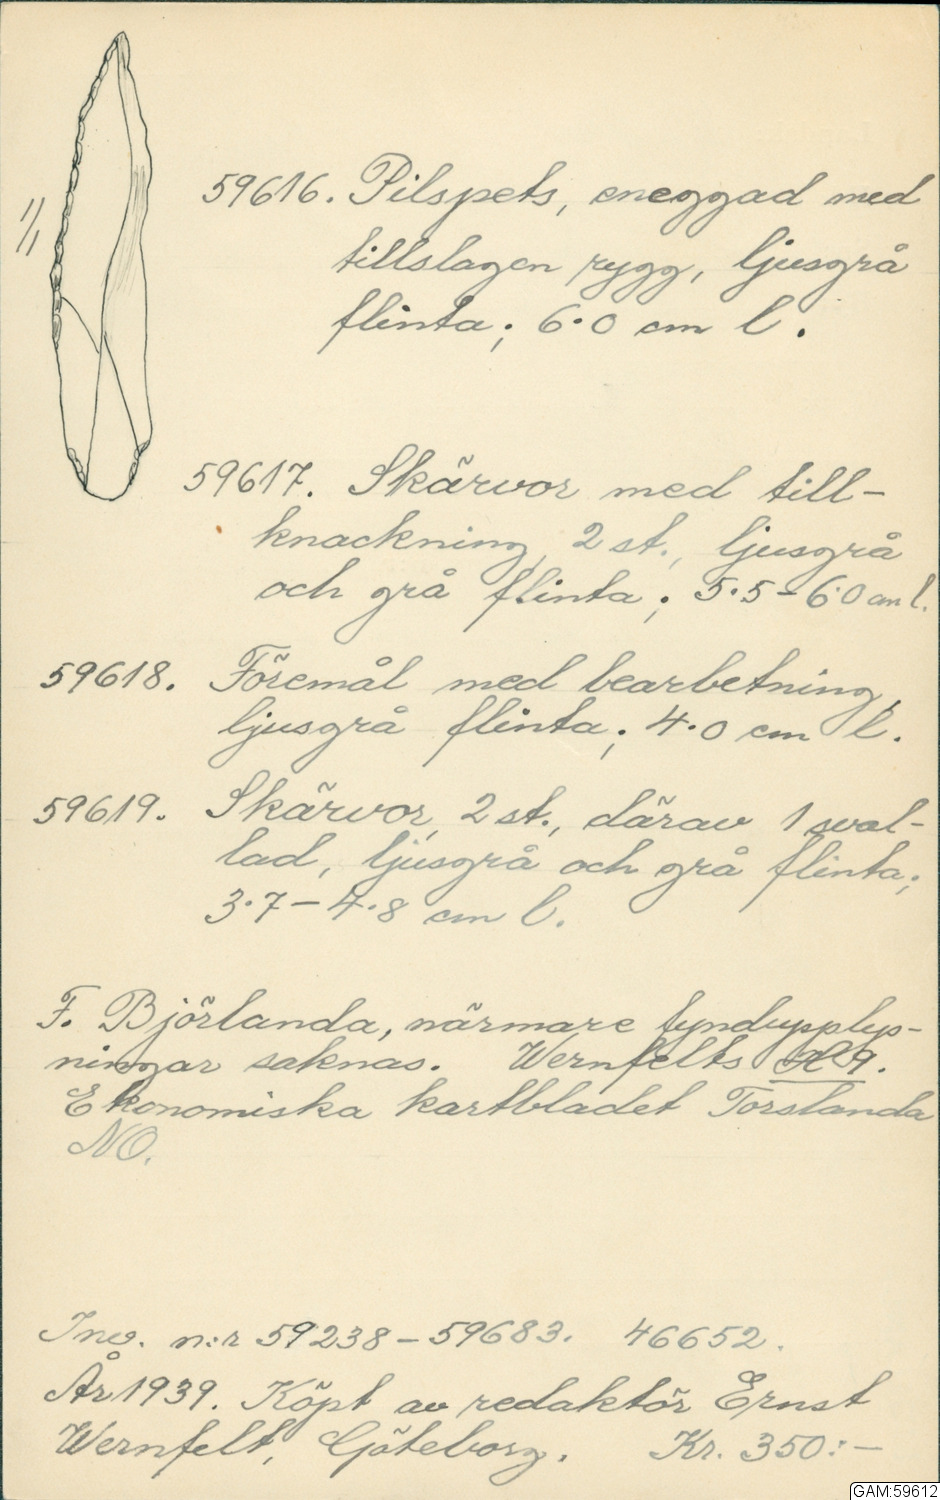 1/1
59616. Pilspets, eneggad med
tillslagen rygg, ljusgrå
flinta; 6.0 cm l.
59617. Skärvor med till-
knackning, 2 st., ljusgrå
och grå flinta; 5.5-6.0 cm l.
59618. Föremål med bearbetning,
ljusgrå flinta; 4.0 cm l.
59619. Skärvor, 2 st., därav 1 sval-
lad, ljusgrå och grå flinta;
3.7-4.8 cm l.
F. Björlanda, närmare fyndupplys-
ningar saknas. Wernfelts
Ekonomiska kartbladet Torslanda
NO.
Inv. n:r 59238-59683. 46652.
År 1939. Köpt av redaktör Ernst
Wernfelt, Göteborg. Kr. 350:-
GAM:59612